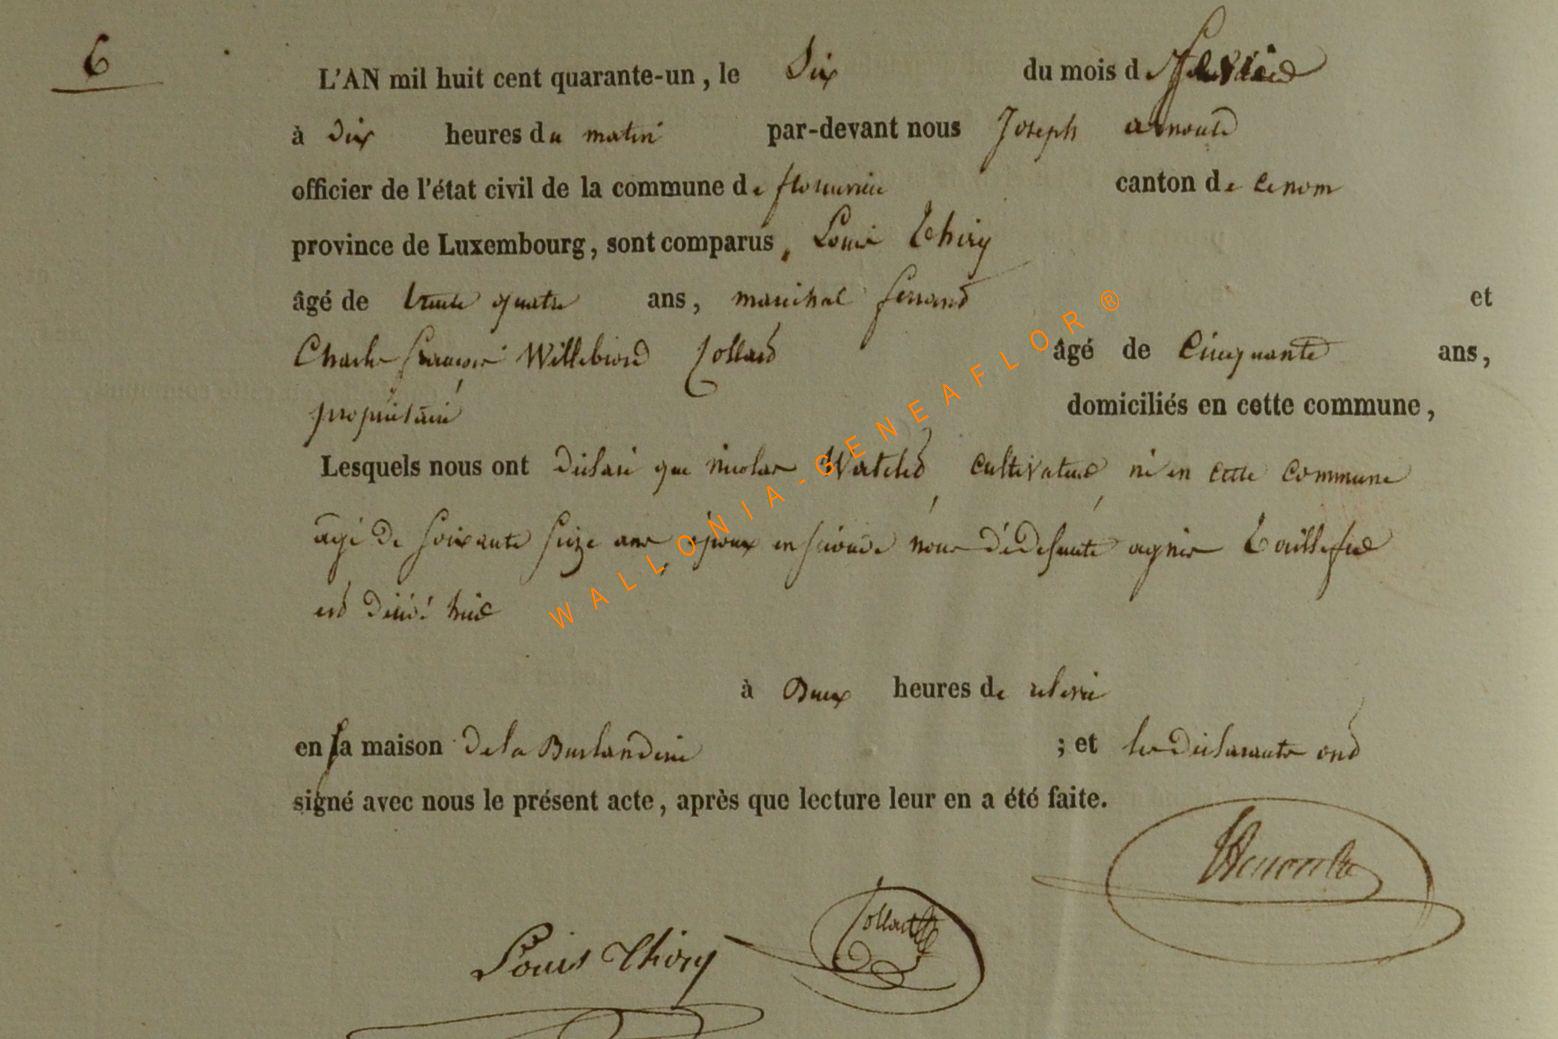 6
L'AN mil huit cent quarante-un, le Dix du mois de fevrier
à Dix heures du matin par-devant nous Joseph arnould
officier de l'état civil de la commune de canton de
province de Luxembourg, sont comparus, Louis Thiry
âgé de trente quatre ans, marichal ferrand et
Charle francois Willebrord Collard âgé de Cinquante ans,
propriétaire domiciliés en cette commune,
Lesquels nous ont déclaré que nicolas cultivateur né en cette commune
agé de soixante seize ans, époux en seconde nôce dédefunte agnies
est décédé hier
à Deux heures de relevé
en sa maison de la ; et les déclarants ond
signé avec nous le présent acte, après que lecture leur en a été faite.
Louis Thiry Collard
WALLONIA-GENEAFLOR®